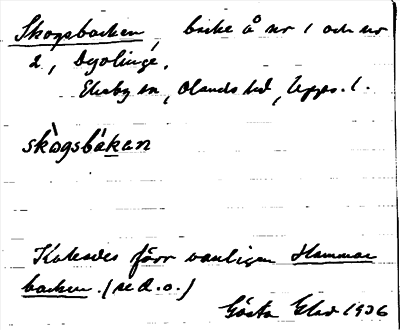 Skogsbacken, backe å nr 1 och nr
2, Dyolinge,
Ekeby sn, Olands hd, Upps. l.
skògsbákan
Kallades förr vanligen Hammar
backen. (se d. o.)
Gösta Elid 1936